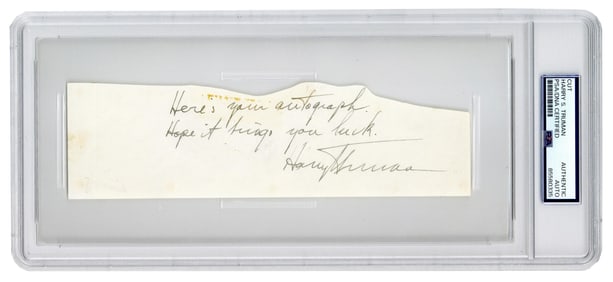 Here's your autograph.
Hope it brings you luck.
Harry Truman
CUT
HARRY S. TRUMAN
PSA/DNA CERTIFIED
PSA
AUTHENTIC
AUTO